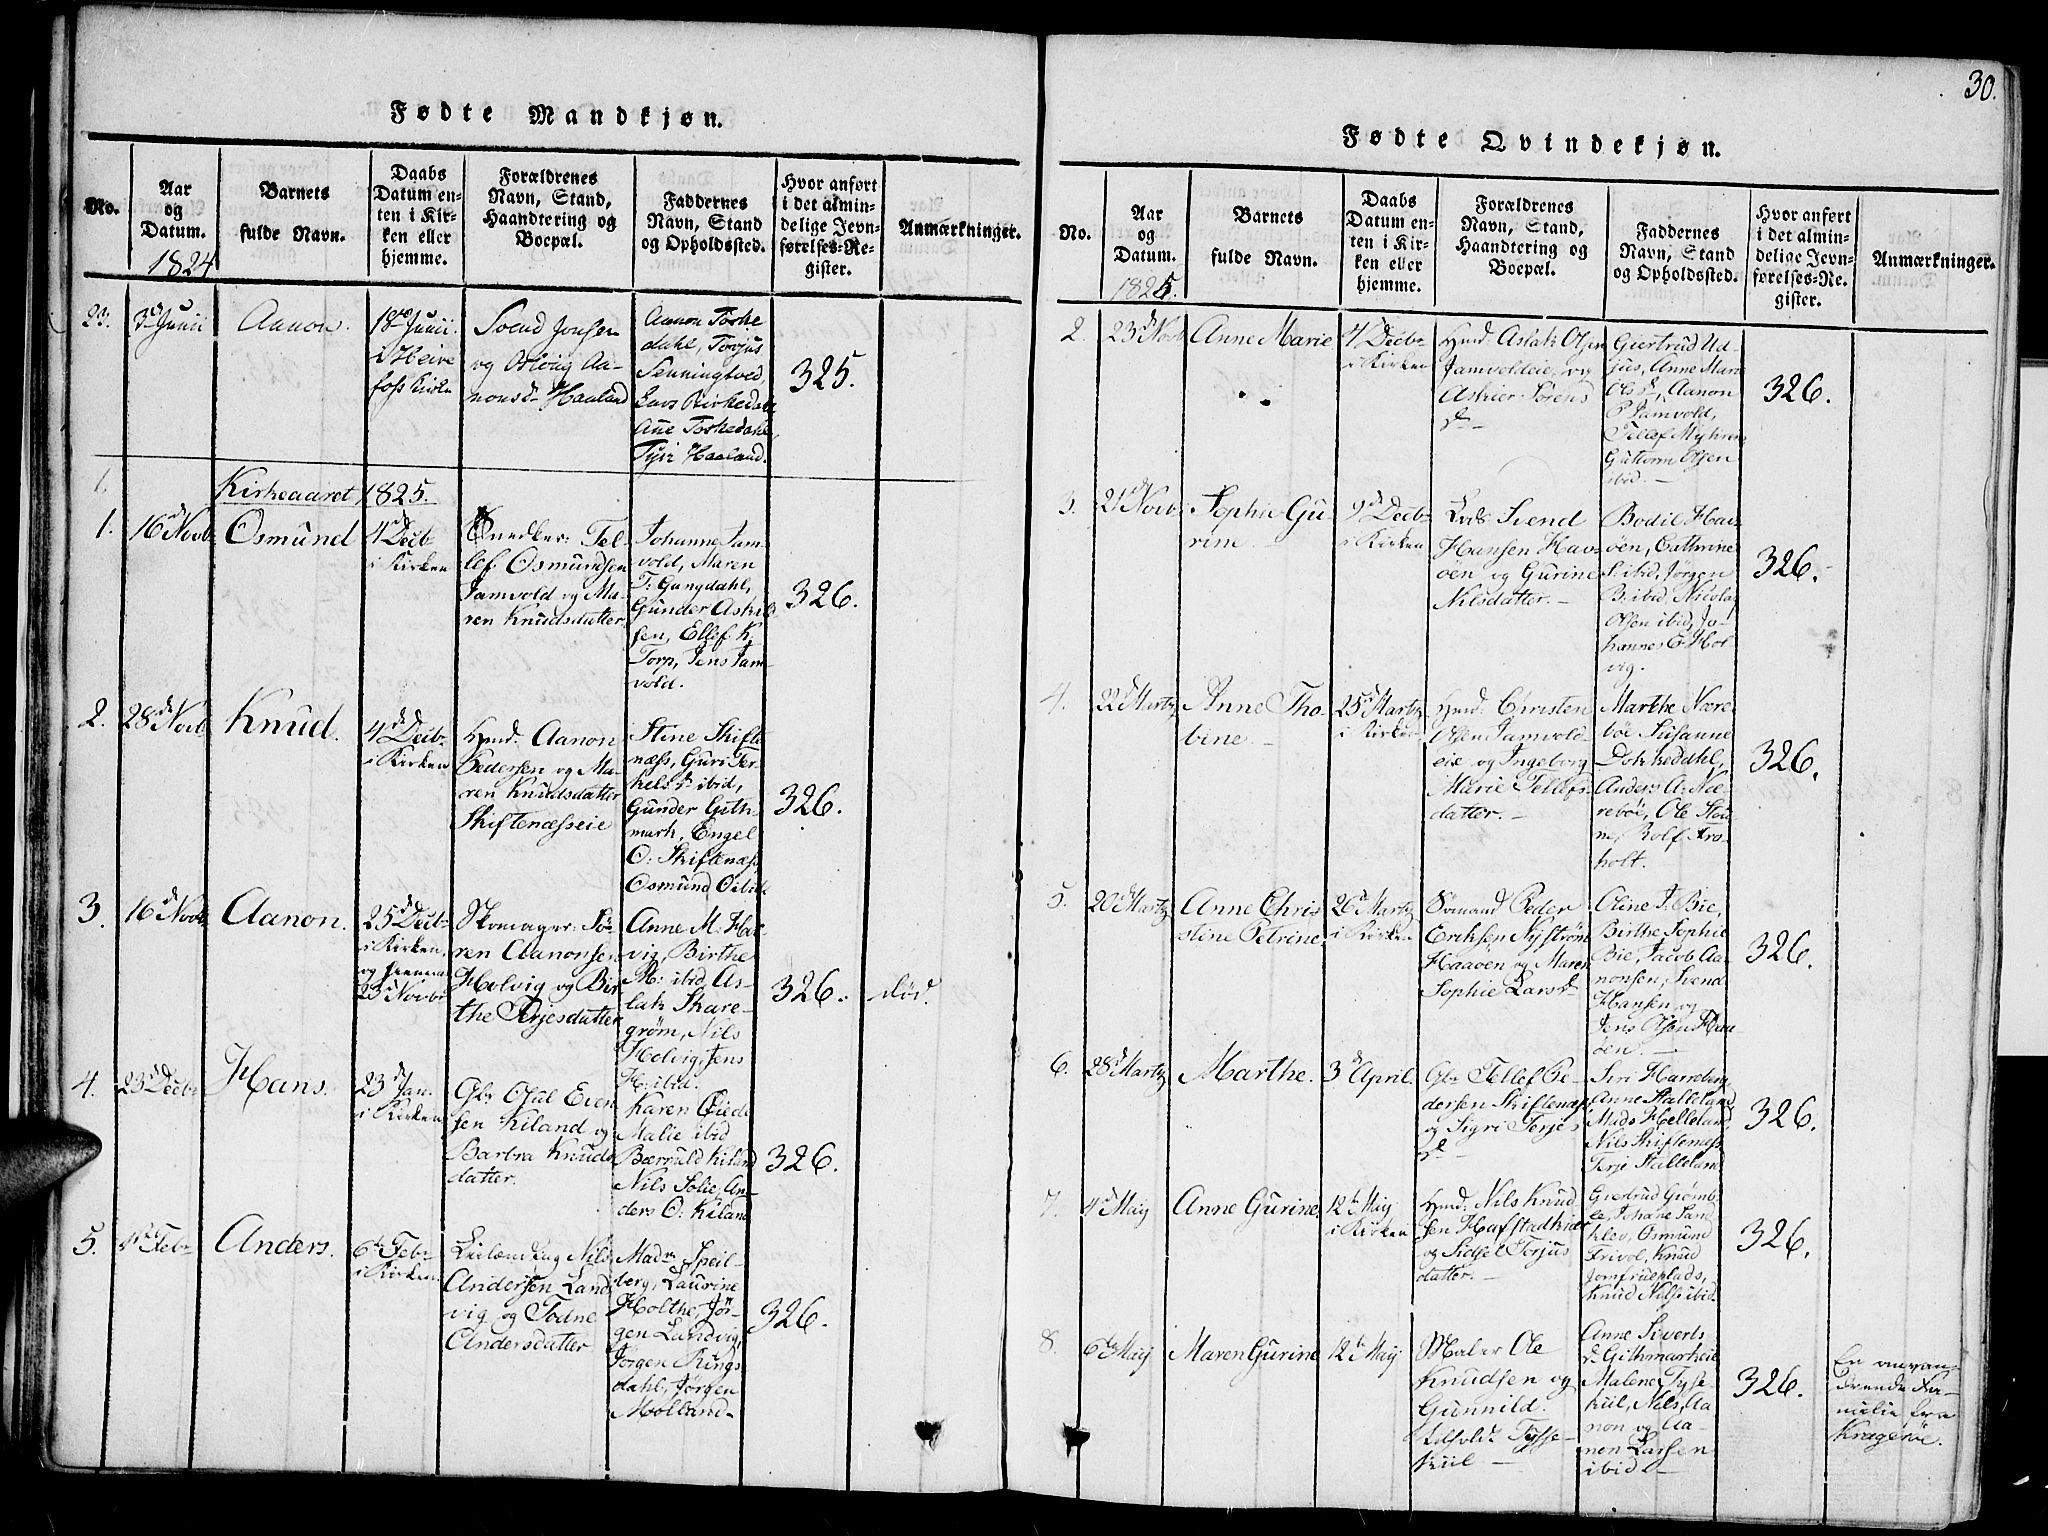 30.
Fødte Mandkjøn.
No.
Aar
og
Datum.
1824
Barnets
fulde Navn.
Daabs
Datum en-
ten i Kir-
ken eller
hjemme.
Forældrenes
Navn, Stand,
Haandtering og
Boepæl.
Faddernes
Navn, Stand
og Opholdssted.
Hvor anført
i det almin-
delige Jevn-
førelses-Re-
gister.
Anmærkninger.
23.
3d Junii
Aanon.
18de Junii
i Heire
foss Kirke
Svend Jonsen
og Aa-
nonsd. Haaland
Aanon Toske
dahl, Torjus
Senningtved,
Lars Birkedal
Ane Toskedahl,
Haaland.
325.
1.
Kirkeaaret 1825.
1.
16d Novb
Osmund
4d Decbr
i Kirken
Snedker: Tel-
lef Osmundsen
Jamvold og Ma-
ren Knudsdatter
Johanne Jam-
vold, Maren
T. Gangdahl,
Gunder Aslak
sen, Ellef K.
Torp, Jens Jam-
vold.
326.
2.
28d Novb
Knud.
4d Decbr
i Kirken
Hmd. Aanon
Pedersen og Ma-
ren Knudsdatter
Skiftenæsseie
Stine Skifte
næss, Guri Ter-
kelsd. ibid,
Gunder Gith-
mark, Engel
O: Skiftenæss
Osmund O: ibid
326.
3.
16d Novb
Aanon.
25d Decbr
i Kirken,
og hiemme
23d Novbr
Skomager: Sø-
ren Aanonsen
Holvig og Bir-
the Terjesdatter
Anne M: Hol-
vig, Birthe
M: ibid, As-
lak Skare-
grøm, Nils
Holvig, Jens
H: ibid.
326.
død.
4.
23d Decbr
Hans.
23d Jan.
i Kirken
Gbr. Ojul Even
sen Kiland og
Barbra Knuds
datter.
Karen Ojuls d
Malie ibid
Bærruld Kiland
Nils Solie, An-
ders O: Kiland
326.
5.
1st Febr
Anders.
6te Febr
i Kirken.
Leilænding Nils
Andersen Land
vig og Todne
Andersdatter
Madm Speil-
berg, Laurine
Holthe, Jør-
gen Landvig
Jørgen Rings
dahl, Jørgen
Molland.
326.
Fødte Qvindekjøn.
No.
Aar
og
Datum.
1825.
Barnets
fulde Navn.
Daabs
Datum en-
ten i Kir-
ken eller
hjemme.
Forældrenes
Navn, Stand,
Haandtering og
Boepæl.
Faddernes
Navn, Stand
og Opholdssted.
Hvor anført
i det almin-
delige Jevn-
førelses-Re-
gister.
Anmærkninger.
2.
23d Novb
Anne Marie
4d Decbr
i Kirken
Hmd. Aslak Olsen
Jamvoldeie, og
Askier Sørens
d.
Giertrud Ud-
jus, Anne Mari
Olsd., Aanon
P. Jamvold,
Tellef Myhren
Guttorm Olsen
ibid.
326.
3.
21d Novb
Sophie Gu
rine
9d Decb
i Kirken
Lods: Svend
Hansen Hav-
öen og Gurine
Nilsdatter.
Bodil Hav-
öen, Cathrine
S: ibid, Jørgen
B: ibid, Nicolai
Olsen ibid, Jo-
hannes E Hol
vig.
326.
4.
22d Martz
Anne Tho-
bine.
25d Martz
i Kirken
Hmd. Christen
Olsen Jamvold-
eie og Ingeborg
Marie Tellefs
datter.
Marthe Nære-
böe Susanne
Dokkedahl,
Anders A: Næ-
reböe, Ole Stou-
ne, Rolf Fro-
holt.
326.
5.
20d Martz
Anne Chris
tine Petrine.
26d Martz
i Kirken
Sømand Peder
Eriksen Nystrøm
Haaøen og Maren
Sophie Larsd.
Oline J. Bie,
Birthe Sophie
Bie, Jacob Aa-
nonsen, Svend
Hansen, og
Jens Olsen Hav-
öen.
326.
6.
28d Martz
Marthe.
3d April.
Gbr. Tellef Pe-
dersen Skiftenæs
og Sigri Terjes
d.
Siri Harreberg
Anne Stalleland
Mads Helleland
Nils Skiftenæss
Terje Stalleland
326.
7.
4d Maij
Anne Gurine.
12te Maij
i Kirken
Hmd. Nils Knud
sen Hafstadkiær
og Sidsel Torjus
datter.
Giertrud Grømb-
le, Johane Sand
klev, Osmund
Frivol, Knud
Jomfrueplads,
Knud Nils: ibid.
326.
8.
6te Maij
Maren Gurine
12te Maij
Maler Ole
Knudsen og
Gunnild
Tysse-
kiil
Anne Siverts
d. Githmarkeie
Malene Tysse-
kiil, Nils, Aa
non og Aa-
non Larsen
ibid.
326.
En omvan-
drende Fa-
milie fra
Kragerøe.